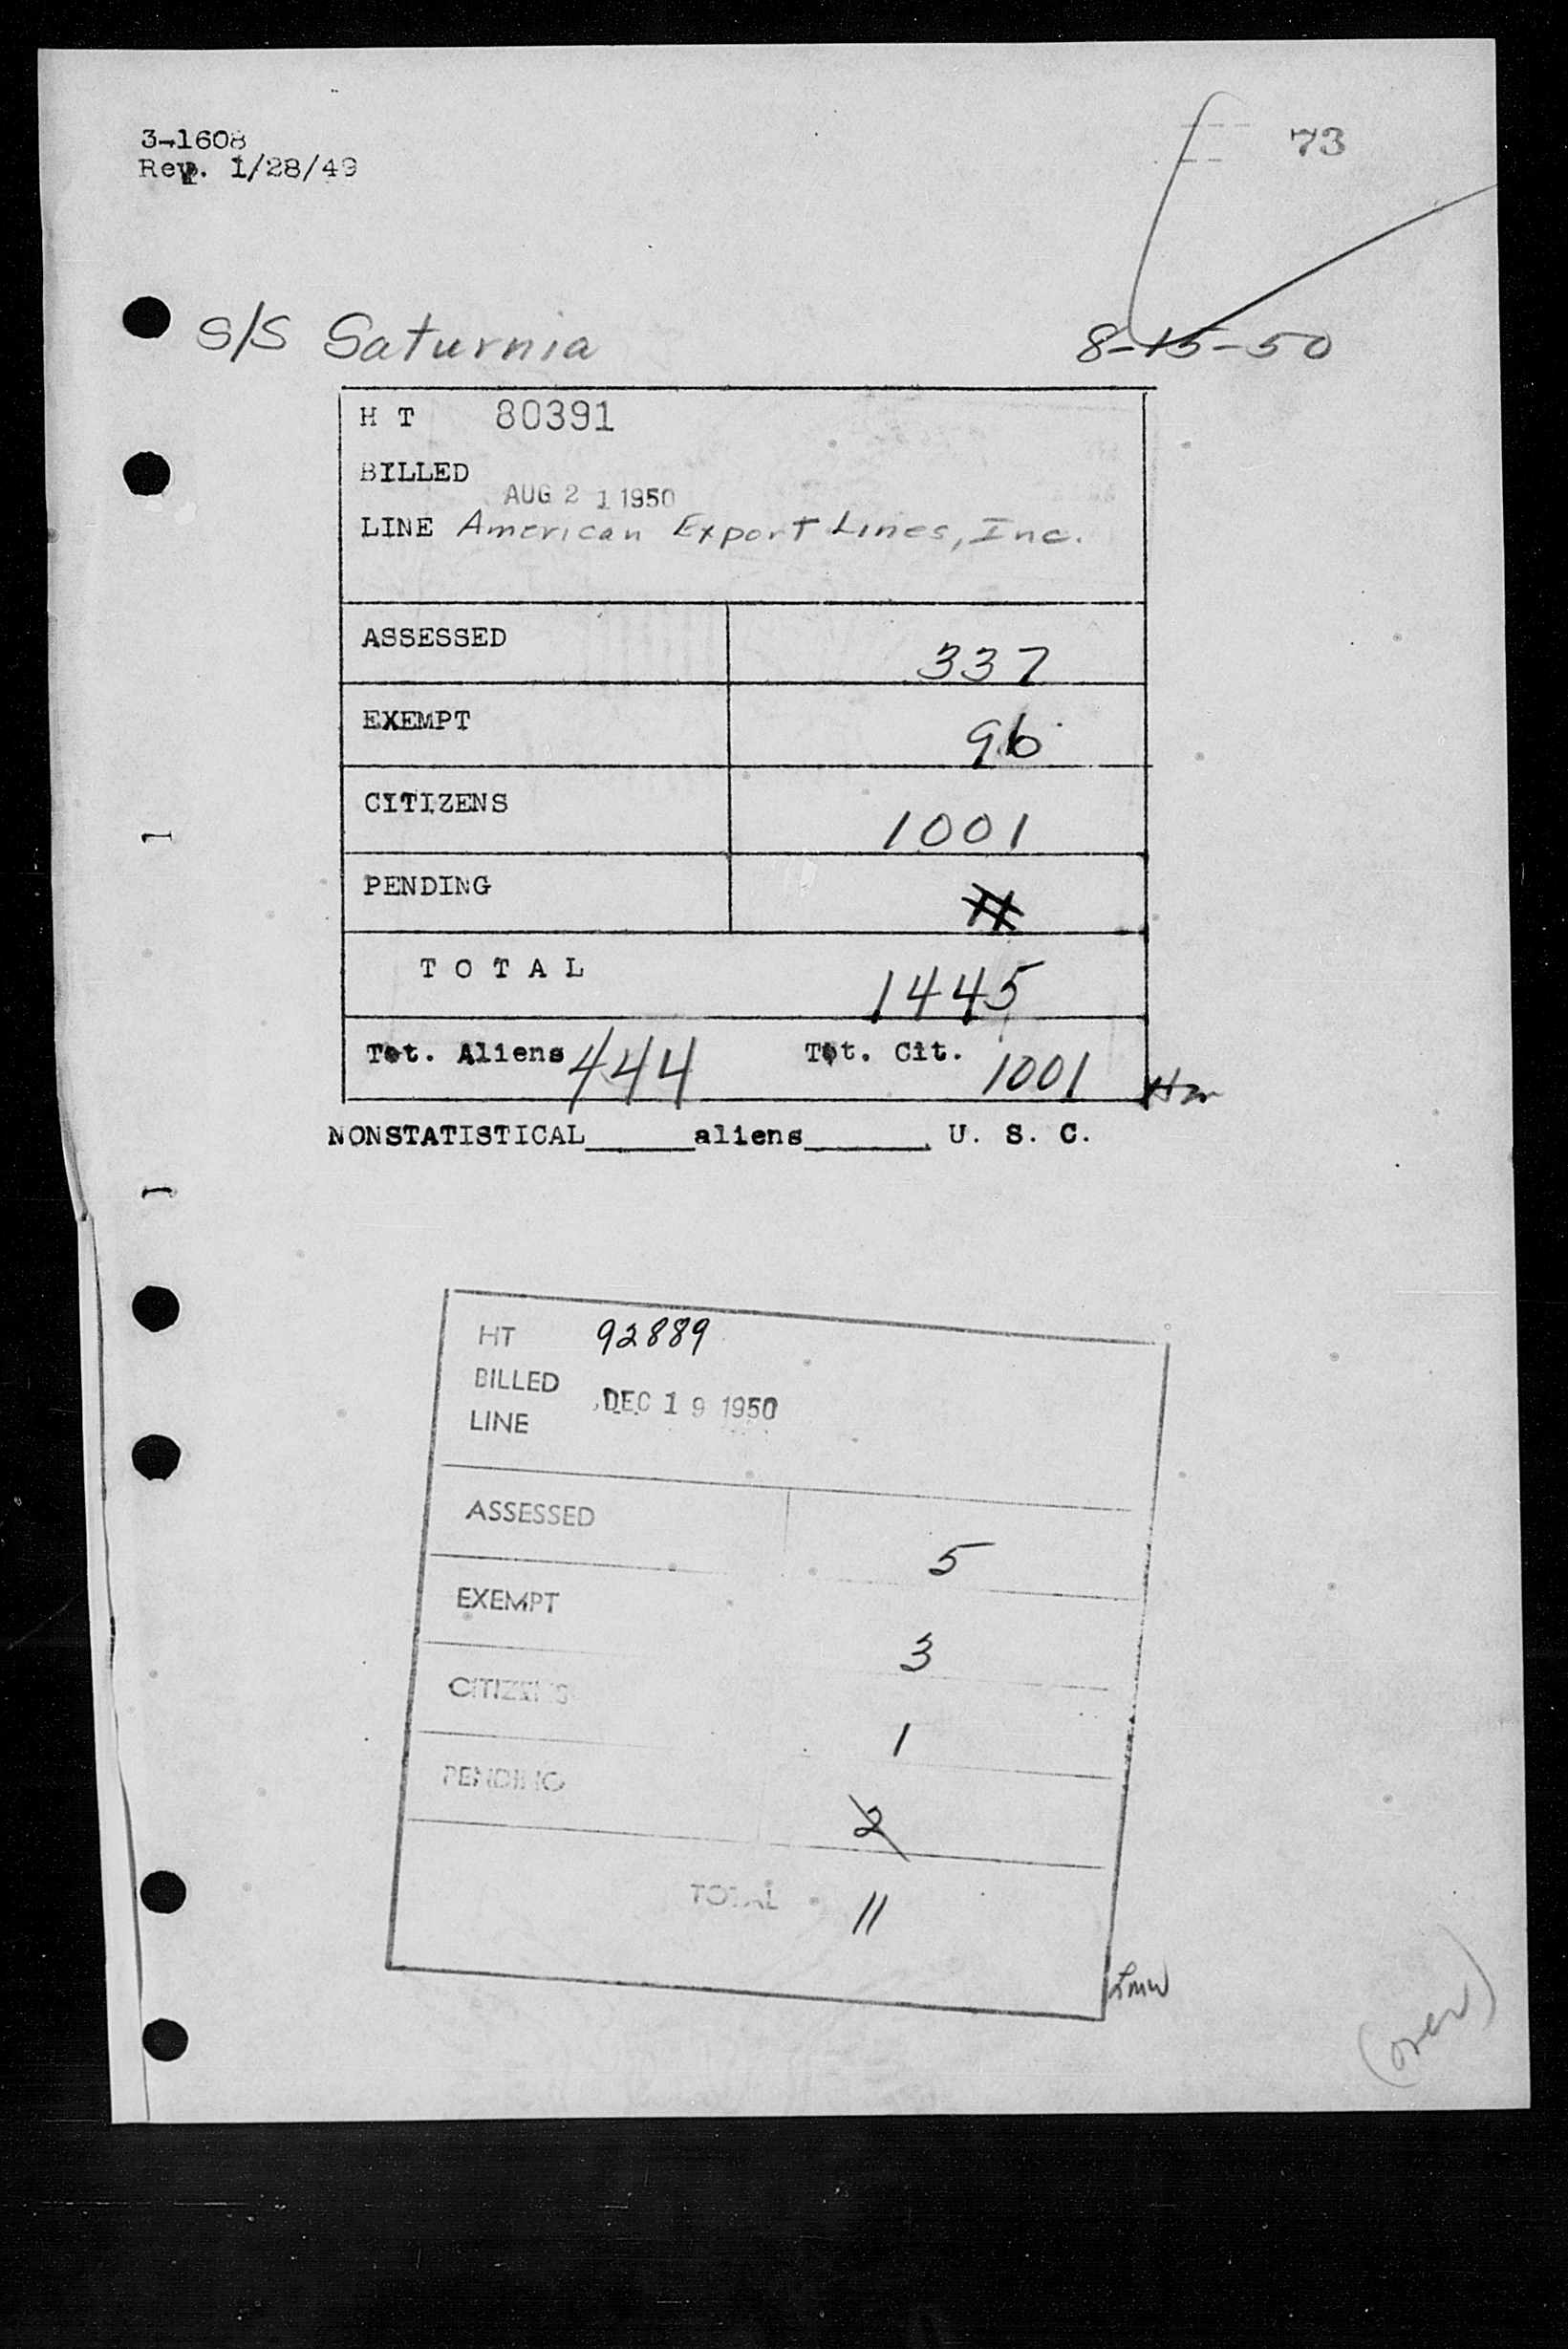 3-1608
Rev. 1/28/49
73
S/S Saturnia 8-15-50
H T 80391
BILLED
AUG 2 1 1950
LINE American Export Lines, Inc.
ASSESSED 337
EXEMPT 96
CITIZENS 1001
PENDING 11
T O T A L 1445
Tot. Aliens 444 Tot. Cit. 1001
NONSTATISTICAL______aliens_______ U. S. C.
HT 92889
BILLED
DEC 1 9 1950
LINE
ASSESSED 5
EXEMPT 3
CITIZENS 1
PENDING 2
TOTAL 11
Lmw
(over)